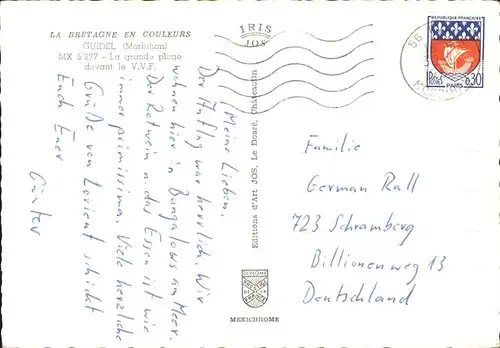 LA BRETAGNE EN COULEURS
GUIDEL (Morbihan)
MX 5277 - La grande plage
devant le V.V.F.
IRIS
JOS
Editions d'Art JOS, Le Doaré, Châteaulin
MEXICHROME
REPUBLIQUE FRANÇAISE
POSTES
0,30
PARIS
56
Meine Lieben.
Der Anflug war herrlich. Wir
wohnen hier in Bungalows am Meer.
Der Rotwein u. das Essen ist wie
immer primissima. Viele herzliche
Grüße von Lorient schickt
Euch Euer
Günter
Familie
German Rall
723 Schramberg
Billionenweg 13
Deutschland